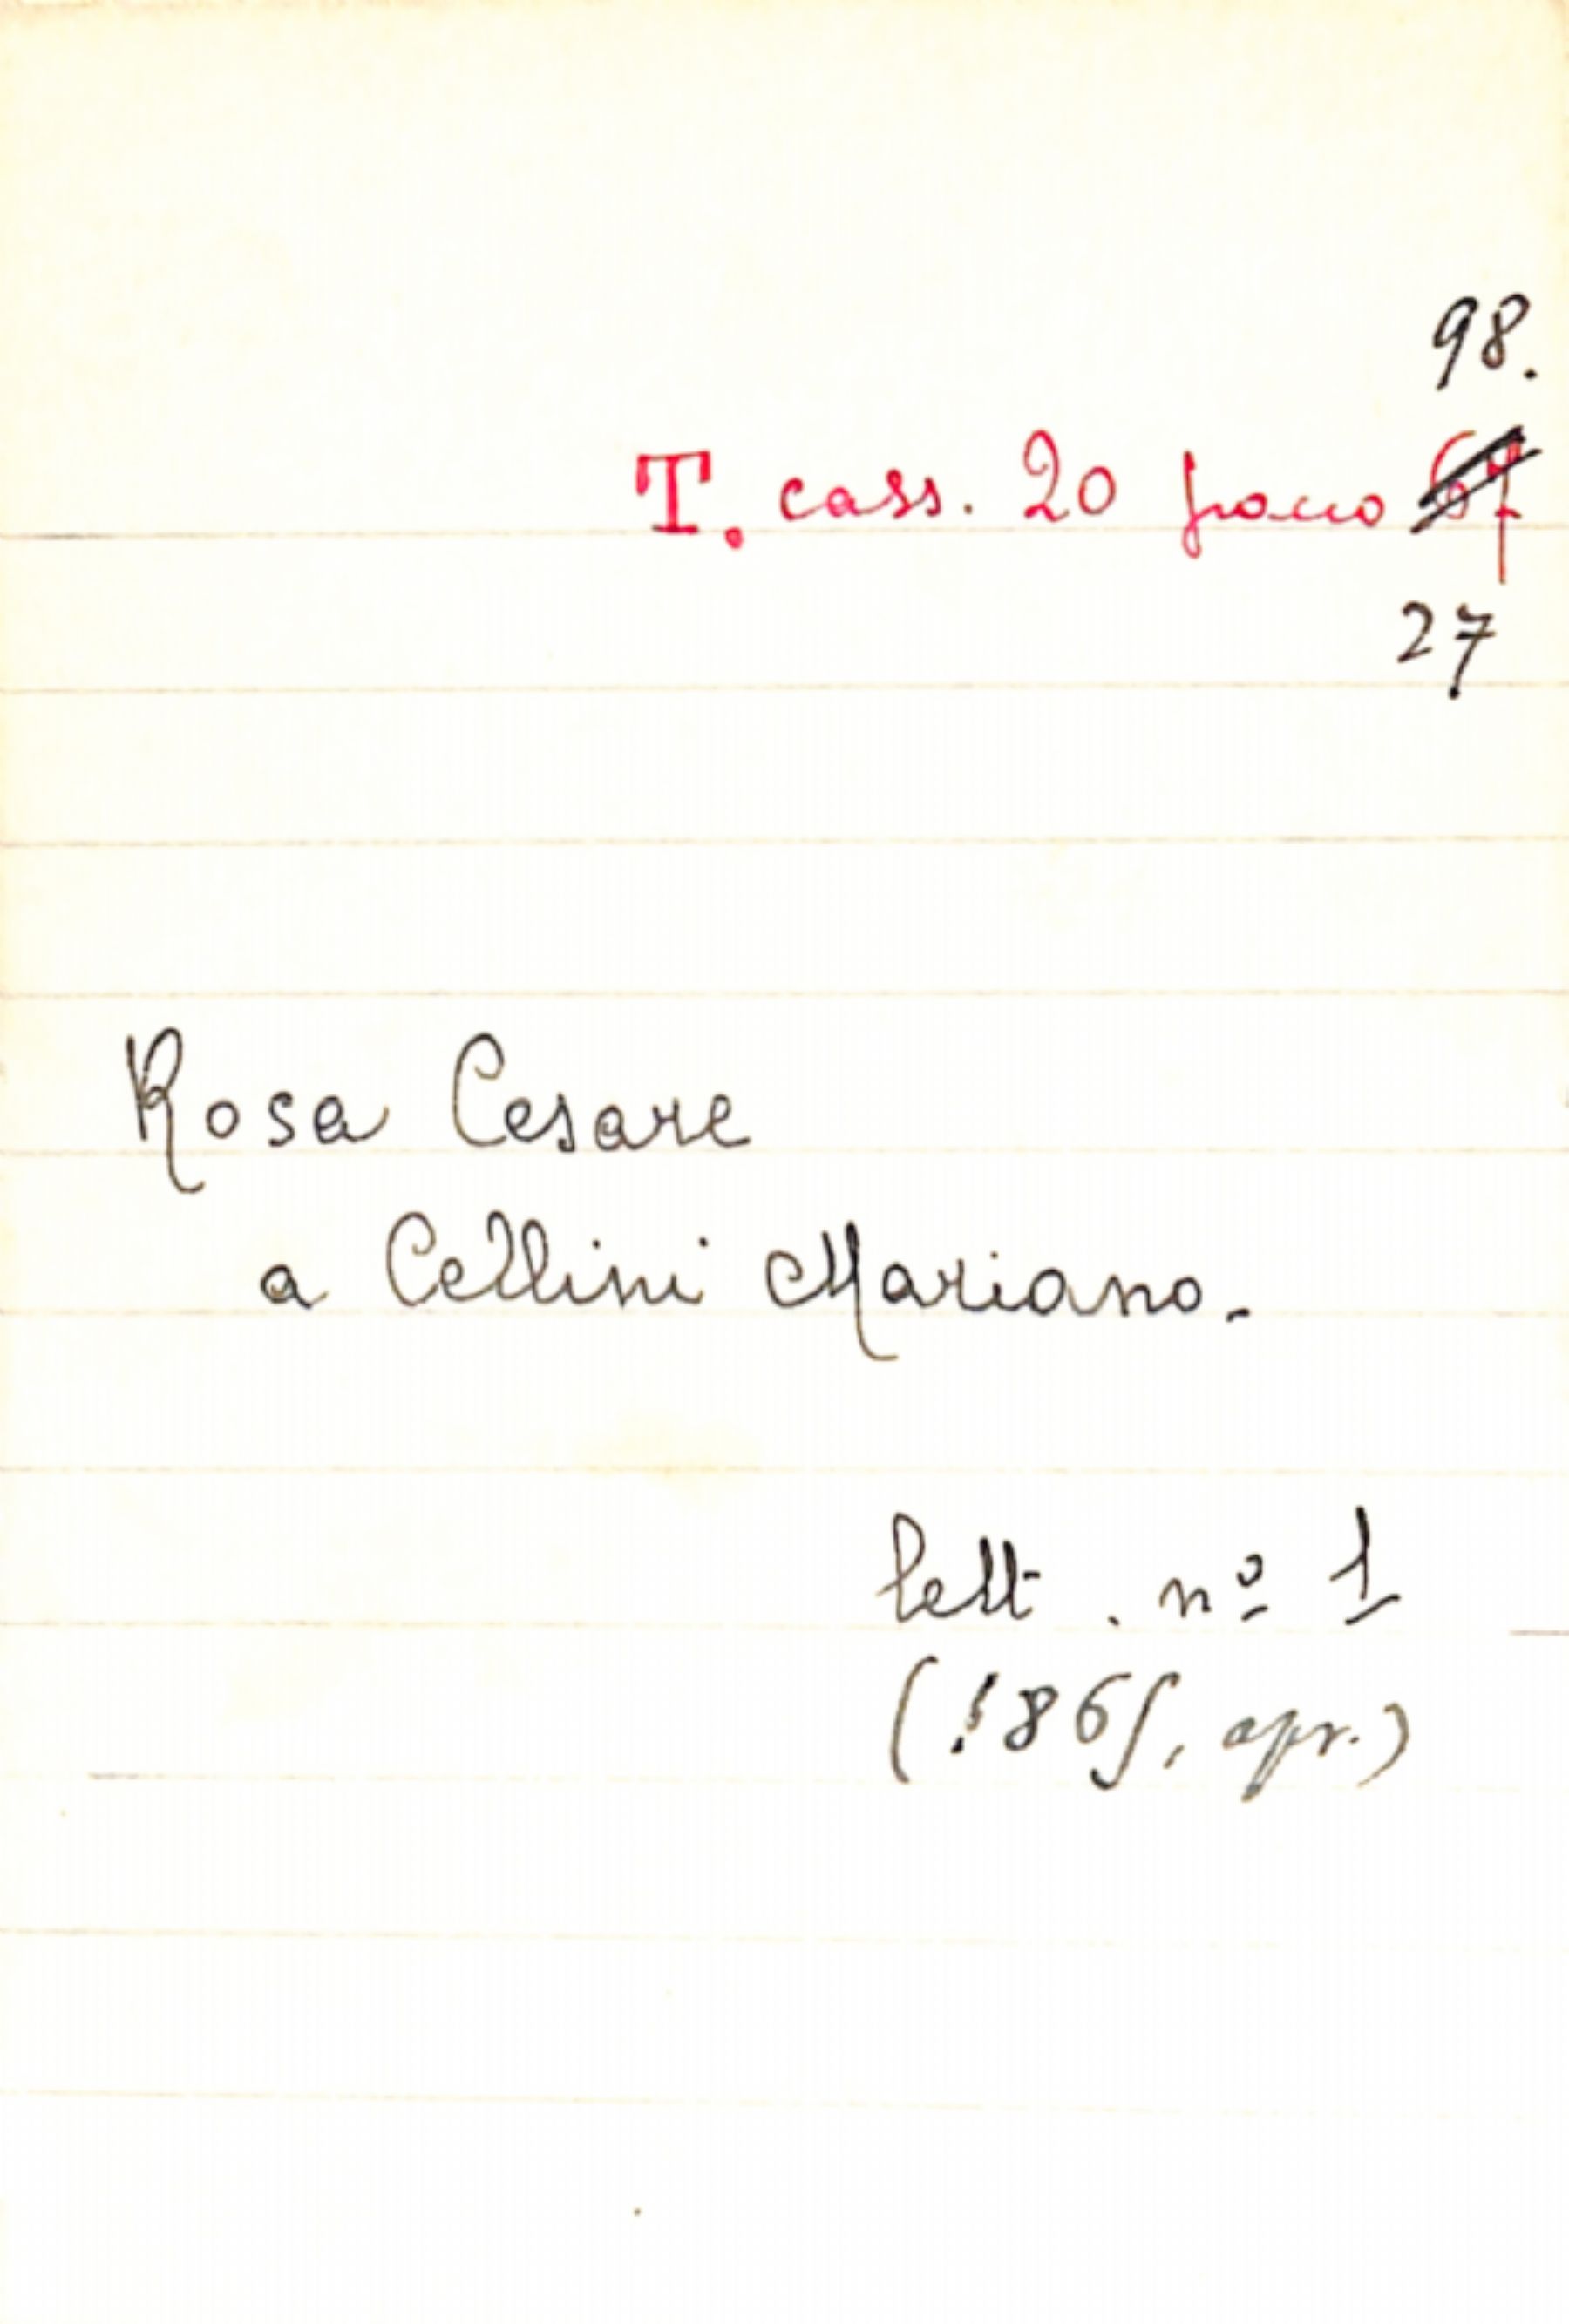 98.
T. cass. 20 pacco 67
27
Rosa Cesare
a Cellini Mariano.
lett. nº 1
(1865, apr.)